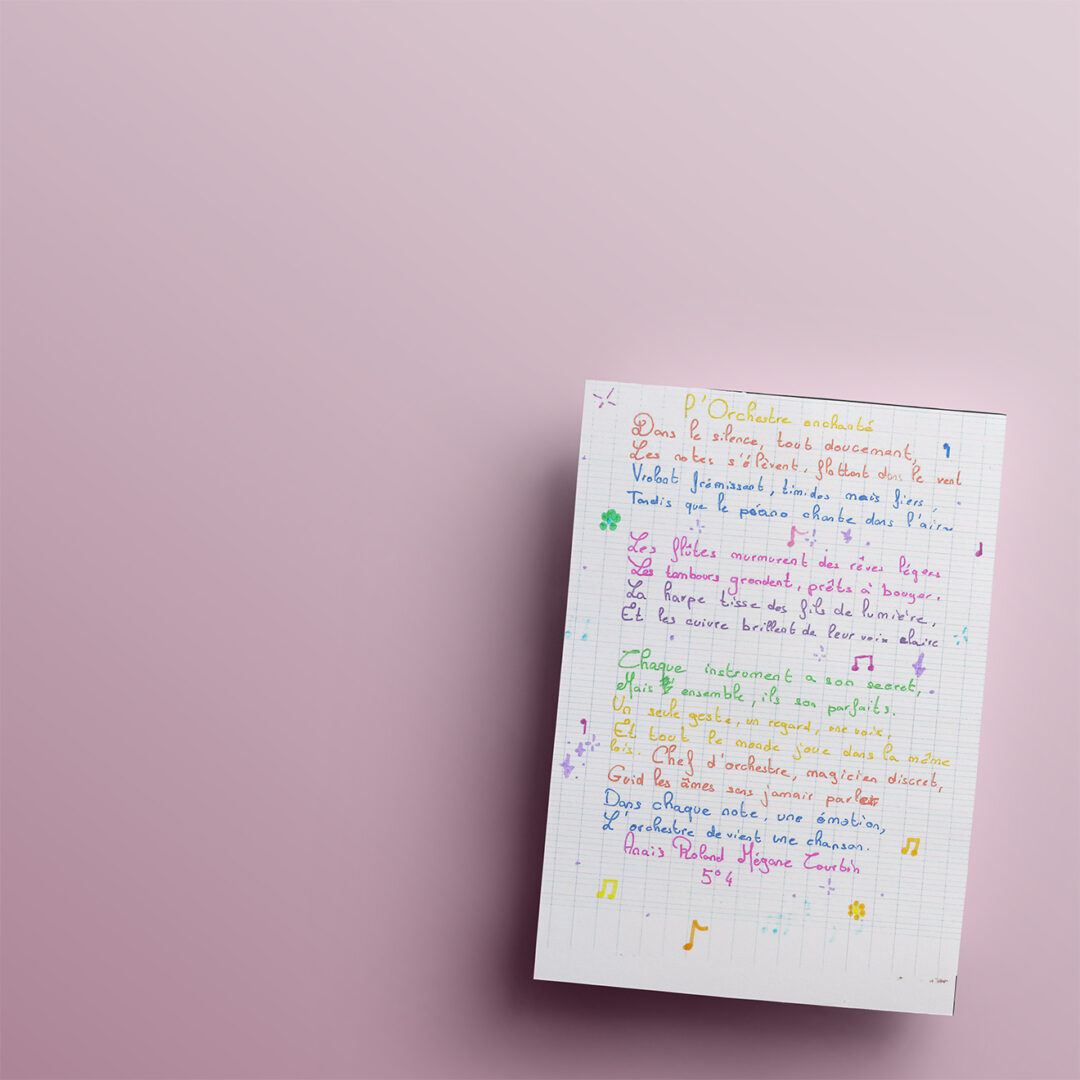 l'Orchestre enchanté
Dans le silence, tout doucemant,
Les notes s'élèvent, flottant dans le vent
Violont frémissant, timides mais fiers,
Tandis que le piano chante dans l'air
Les flûtes murmurent des rêves légers
Les tambours grondent, prêts à bouger.
La harpe tisse des fils de lumière,
Et les cuivre brillent de leur voix claire
Chaque instrument a son secret,
Mais ensemble, ils son parfaits.
Un seule geste, un regard, une voix,
Et tout le monde joue dans la même
lois. Chef d'orchestre, magicien discret,
Guid les âmes sans jamais parler
Dans chaque note, une émotion,
L'orchestre devient une chanson.
Anais Roland Mégane Courbin
5°4